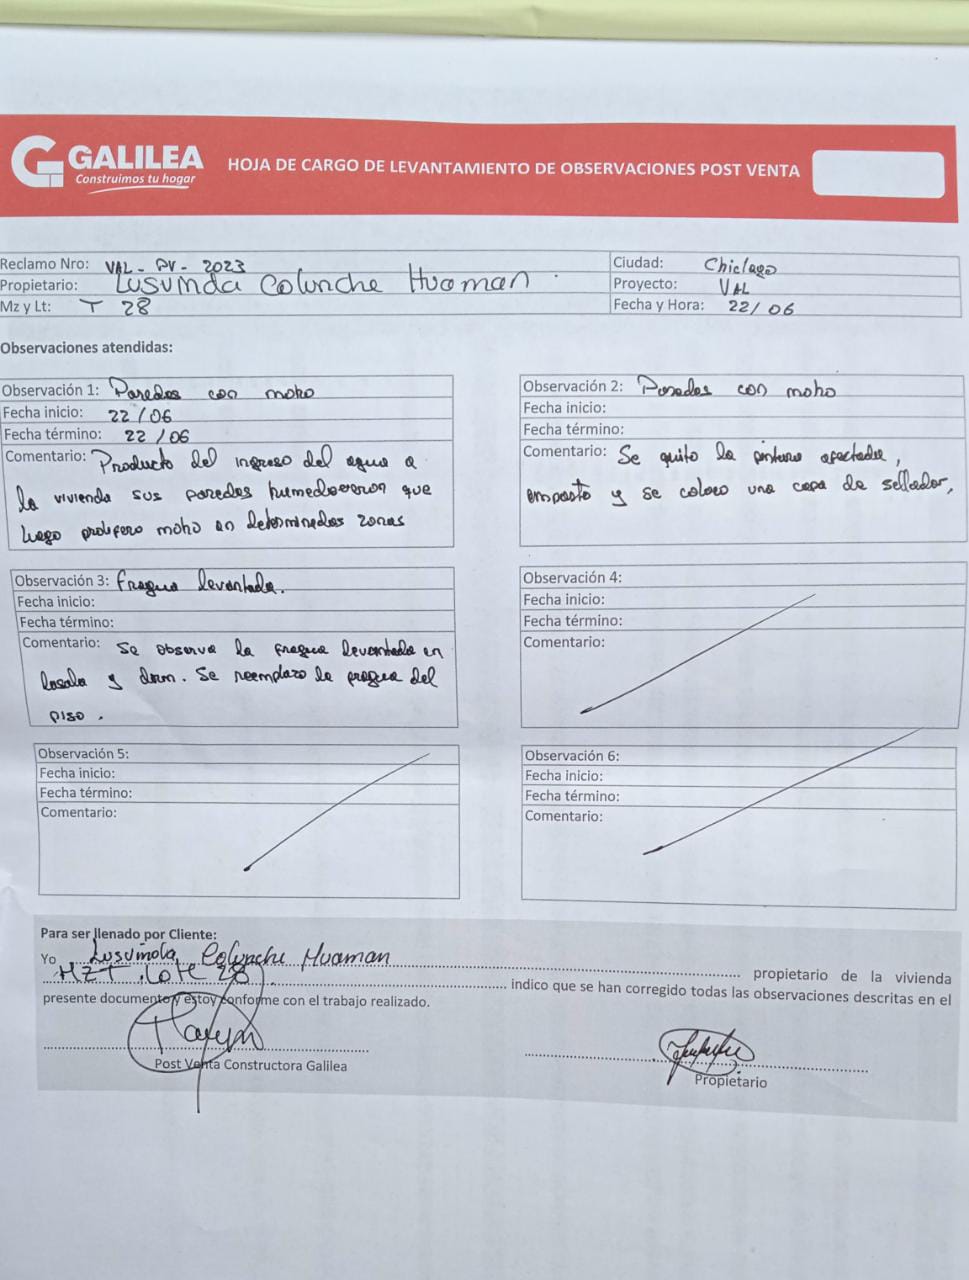 GALILEA
Construimos tu hogar
HOJA DE CARGO DE LEVANTAMIENTO DE OBSERVACIONES POST VENTA
Reclamo Nro: VAL - PV - 2023
Ciudad: Chiclayo
Propietario: Lusvinda Colunche Huaman
Proyecto: VAL
Mz y Lt: T 28
Fecha y Hora: 22/06
Observaciones atendidas:
Observación 1: Paredes con moho
Fecha inicio: 22/06
Fecha término: 22/06
Comentario: Producto del ingreso del agua a
la vivienda sus paredes humedecieron que
luego prolifero moho en determinadas zonas
Observación 2: Paredes con moho
Fecha inicio:
Fecha término:
Comentario: Se quito la pintura afectada,
empasto y se coloco una capa de sellador,
Observación 3: fragua levantada.
Fecha inicio:
Fecha término:
Comentario: Se observa la fragua levantada en
la sala y dorm. Se reemplazo la fragua del
piso.
Observación 4:
Fecha inicio:
Fecha término:
Comentario:
Observación 5:
Fecha inicio:
Fecha término:
Comentario:
Observación 6:
Fecha inicio:
Fecha término:
Comentario:
Para ser llenado por Cliente:
Yo Lusvinda Colunche Huaman propietario de la vivienda
MZ T Lote 28 indico que se han corregido todas las observaciones descritas en el
presente documento y estoy conforme con el trabajo realizado.
Post Venta Constructora Galilea
Propietario